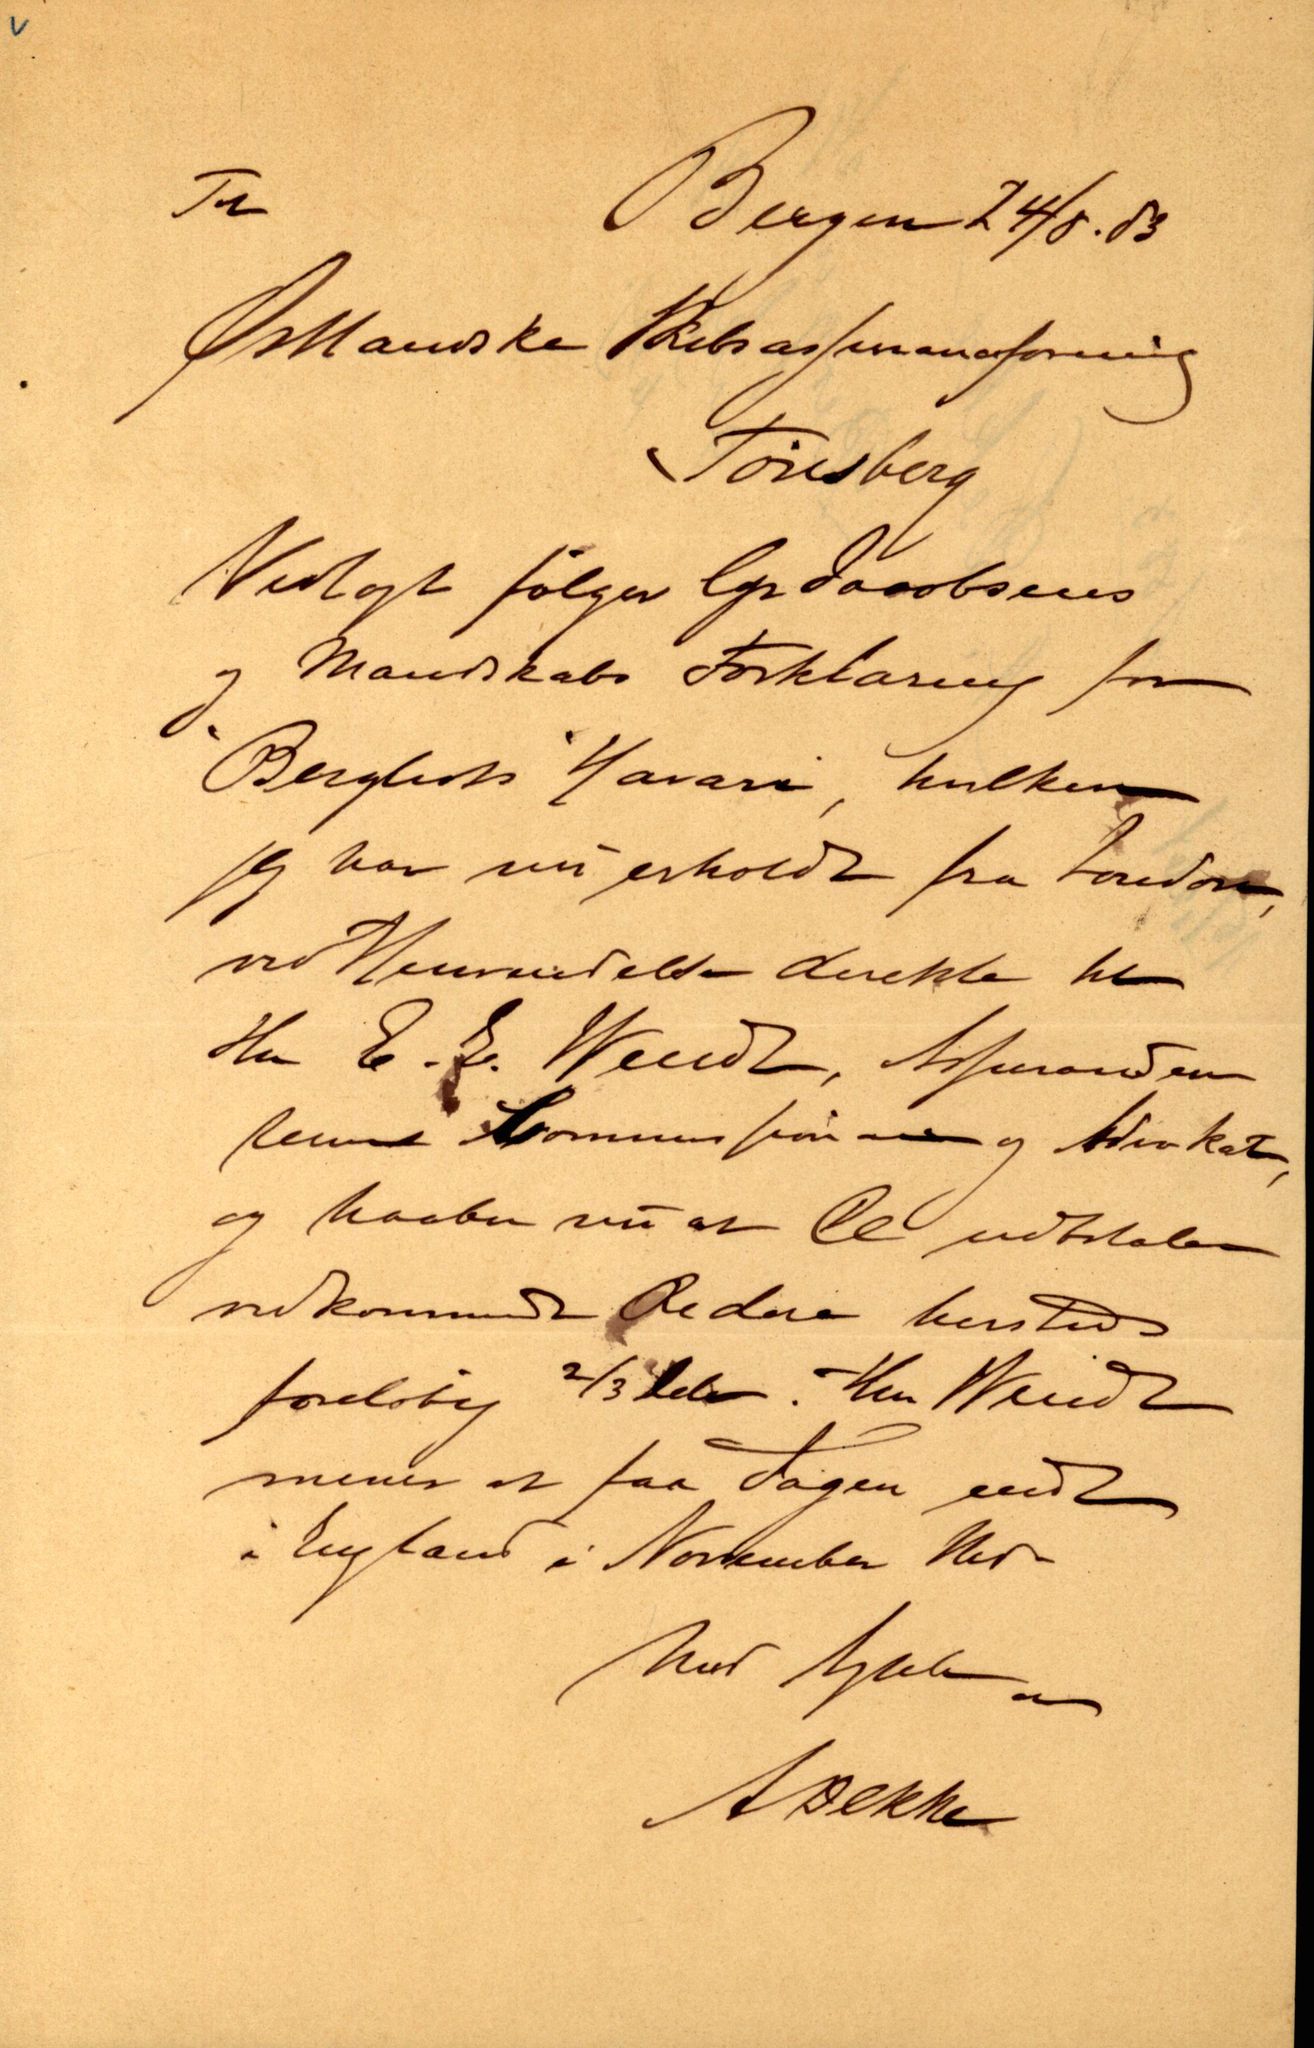 Bergen 24/8.83
Til
Østlandske Skibsassuranceforening
Tönsberg
Vedlagt fölger Cpt Jacobsens
og Mandskabs Forklaring for
"Bergliots" Havari, hvilken
jeg har nu erholdt fra London,
ved Henvendelse direkte til
Herr E. E. Wendt, Assurancefor
Commissionair og Advokat,
og haaber nu at De udbetaler
vedkommende Redere hersteds
forelöbig 2/3 Dele. Herr Wendt
mener at faa Sagen endt
i England i November Md.
Med Agtelse
A Dekke